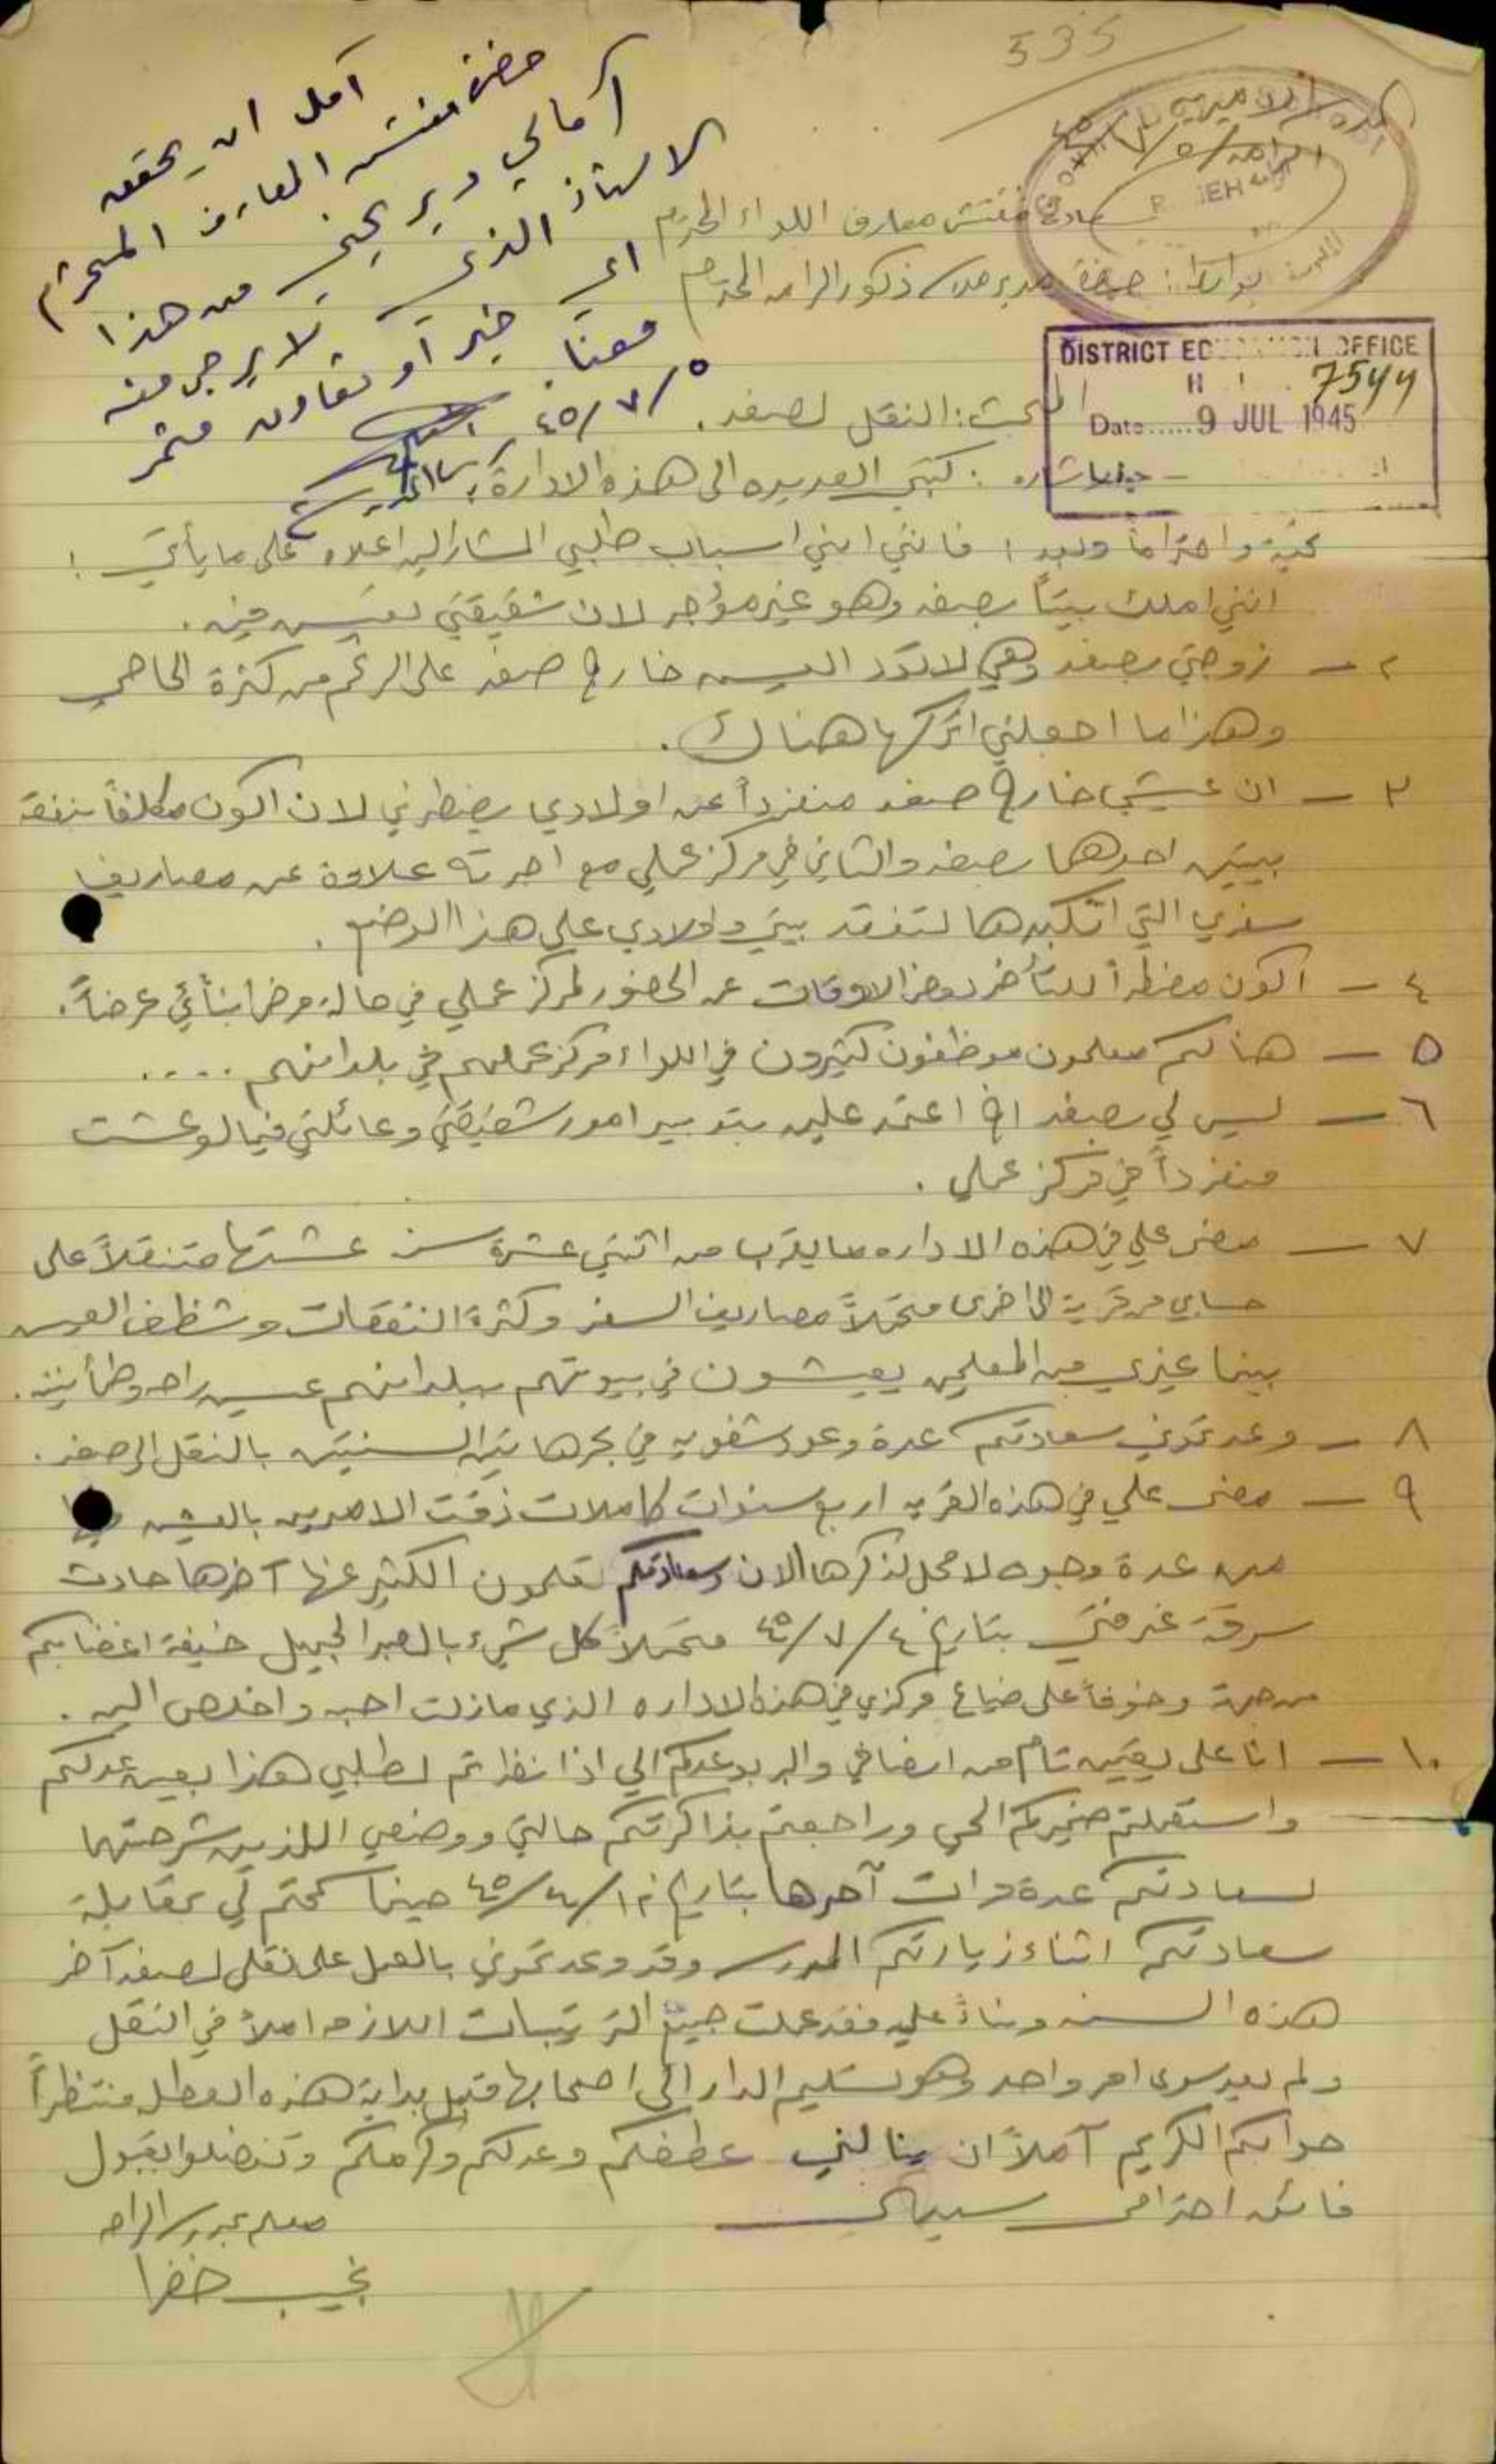 535
حضرة مفتش المعارف المحترم
آمل ان يحقق
آمالي ويريحني من هذا
الاستاذ الذي لا يرجى منه
اي خير او تعاون مثمر
معنا.
٥/٧/٤٥
المدرسة الاميرية
الرامه ٥/٧/٤٥
RAMEH الرامة
سعادة مفتش معارف اللواء المحترم
بواسطة: حضرة مدير مدرسة ذكور الرامه المحترم
DISTRICT EDUCATION OFFICE
7544
Date..... 9 JUL 1945
المبحث: النقل لصفد.
اشاره: كتبي العديده الى هذه الادارة
تحية واحتراماً وبعد؛ فانني ابني اسباب طلبي المشار اليه اعلاه على ما يأتي:
انني املك بيتاً بصفد وهو غير مؤجر لان شقيقتي تعيش فيه.
٢ - زوجتي بصفد وهي لا تود العيش خارج صفد على الرغم من كثرة الحاحي
وهذا ما اجعلني اتركها هناك.
٣ - ان عيشي خارج صفد منفرداً عن اولادي يضطرني لان اكون مكلفاً بنفقة
بيتين احدهما بصفد والثاني في مركز عملي مع اجرته علاوة عن مصاريف
سفري التي اتكبدها لتفقد بيتي واولادي على هذا الوضع.
٤ - اكون مضطراً للتأخر بعض الاوقات عن الحضور لمركز عملي في حالة مرض ابنائي عرضاً.
٥ - هنالكم معلمون موظفون كثيرون في اللواء مركز عملهم في بلدانهم ....
٦ - ليس لي بصفد اخ اعتمد عليه بتدبير امور شقيقتي وعائلتي فيما لو عشت
منفرداً في مركز عملي.
٧ - مضى علي في هذه الاداره ما يقرب من اثنتي عشرة سنه عشتها متنقلاً على
حسابي من قرية الى اخرى متحملاً مصاريف السفر وكثرة النفقات وشظف العيش
بينما غيري من المعلمين يعيشون في بيوتهم ببلدانهم عيش راحه وطمأنينه.
٨ - وعدتموني سعادتكم عدة وعود شفويه في بحر هاتين السنتين بالنقل الى صفد.
٩ - مضى علي في هذه القريه اربع سنوات كاملات ذقت الامرين بالعيش
من عدة وجوه لا محل لذكرها الان وسعادتكم تعلمون الكثير عنها آخرها حادث
سرقة غرفتي بتاريخ ٤/٧/٤٥ متحملاً كل شيء بالصبر الجميل خيفة اغضابكم
من جهة وخوفاً على ضياع مركزي في هذه الاداره الذي مازلت احبه واخلص اليه.
١٠ - انا على يقين تام من انصافي والبر بوعدكم الي اذا نظرتم لطلبي هذا بعين عدلكم
واستعملتم ضميركم الحي وراجعتم بذاكرتكم حالتي ووضعي اللذين شرحتهما
لسعادتكم عدة مرات آخرها بتاريخ ١٢/٤/٤٥ حينما سمحتم لي بمقابلة
سعادتكم اثناء زيارتكم المدرسه وقد وعدتموني بالعمل على نقلي لصفد آخر
هذه السنه وبناءً عليه فقد عملت جميع الترتيبات اللازمه املاً في النقل
ولم يعد سوى امر واحد وهو تسليم الدار الى اصحابها قبيل بداية هذه العطله منتظراً
جوابكم الكريم آملاً ان ينالني عطفكم وعدلكم وكرمكم وتفضلوا بقبول
فائق احترامي سيدي
معلم بمدرسة الرامه
نجيب خفرا
لا